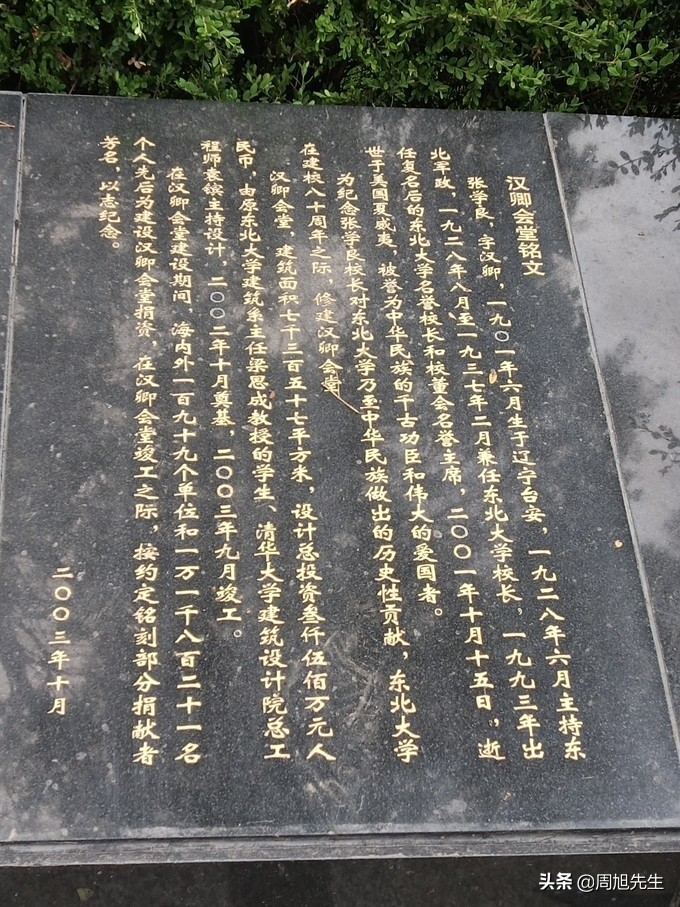 汉卿会堂铭文
张学良，字汉卿，一九〇一年六月生于辽宁台安，一九二八年六月主持东
北军政，一九二八年八月至一九三七年二月兼任东北大学校长，一九九三年出
任复名后的东北大学名誉校长和校董会名誉主席，二〇〇一年十月十五日，逝
世于美国夏威夷，被誉为中华民族的千古功臣和伟大的爱国者。
为纪念张学良校长对东北大学乃至中华民族做出的历史性贡献，东北大学
在建校八十周年之际，修建汉卿会堂
汉卿会堂，建筑面积七千三百五十七平方米，设计总投资叁仟伍佰万元人
民币，由原东北大学建筑系主任梁思成教授的学生、清华大学建筑设计院总工
程师袁镔主持设计，二〇〇二年十月奠基，二〇〇三年九月竣工。
在汉卿会堂建设期间，海内外一百九十九个单位和一万一千八百二十一名
个人先后为建设汉卿会堂捐资，在汉卿会堂竣工之际，按约定铭刻部分捐献者
芳名，以志纪念。
二〇〇三年十月
头条 @周旭先生